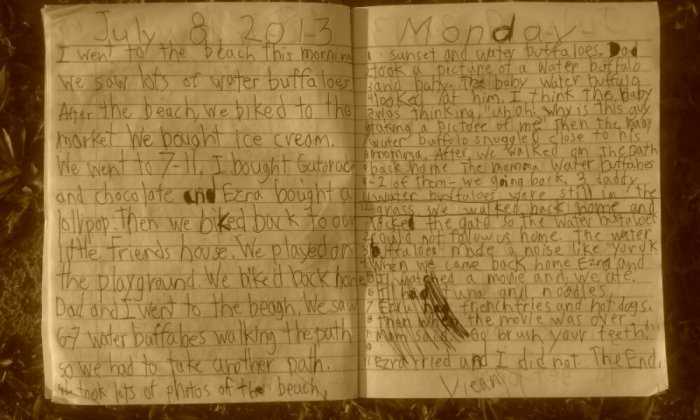 July 8, 2013
I went to the beach this morning
We saw lots of water buffaloes
After the beach, we biked to the
market. We bought ice cream.
We went to 7-11. I bought Gatorade
and chocolate and Ezra bought a
lollypop. Then we biked back to our
little friends house. We played on
the playground. We biked back home
Dad and I went to the beach. We saw
67 water buffaloes walking the path
so we had to take another path.
took lots of photos of the beach,
Monday
sunset and water buffaloes. Dad
took a picture of a water buffalo
and baby. The baby water buffalo
looked at him. I think the baby
was thinking, "uh oh, why is this guy
taking a picture of me" Then the baby
water buffalo snuggled close to his
momma. After, we walked on the path
back home. The momma water buffaloes
2 of them - we going back. 3 daddy
water buffaloes were still in the
grass. We walked back home and
the gate so the water buffaloes
could not follow us home. The water
buffaloes made a noise like
When we came back home Ezra and
I watched a movie and we ate.
I had tuna and noodles
Ezra had frenchfries and hot dogs.
Then when the movie was over,
Mom said, "Go brush your teeth."
Ezra cried and I did not. The End.